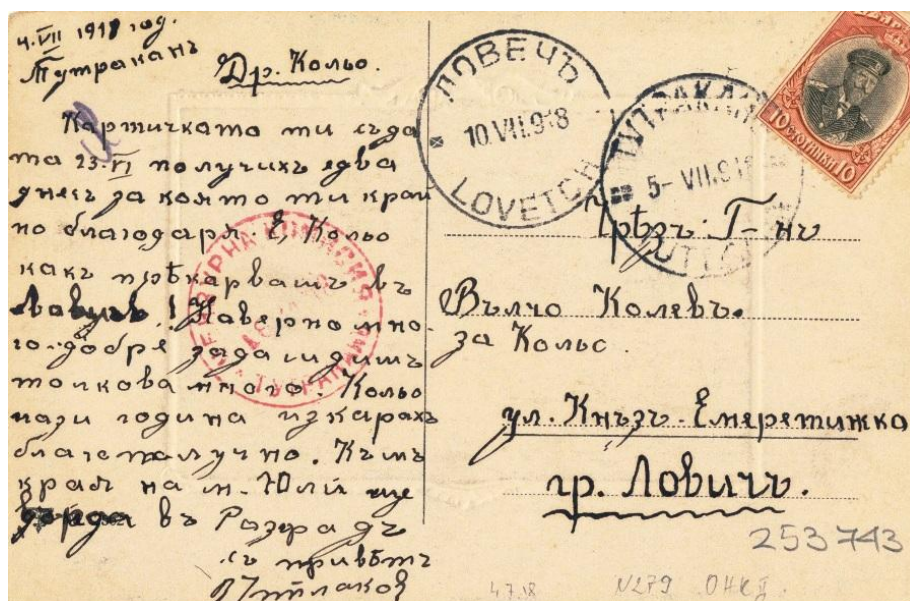 4.VII 1918 год.
Тутраканъ
Др. Кольо.
Картичката ти съ да
та 23.VI получихъ едва
днесъ за която ти край
но благодаря. Е, Кольо
какъ прѣкарвашъ въ
Ловичъ! Наверно мно-
го-добре за да сидишъ
толкова много. Кольо
тази година искарахъ
благополучно. Къмъ
края на м. Юлий ще
дойда въ Разградъ
съ привѣтъ
ЛОВЕЧЪ
10.VII.918
LOVETCH
ТУТРАКАНЪ
5-VII.918
10 СТОТИНКИ 10
ЦЕНЗУРНА КОМИСИЯ
Чрѣзъ Г-нъ
Вълчо Колевъ.
за Кольо.
ул. Кнъзъ-Емеретинка
гр. Ловичъ.
253743
4.7.18 N279 ОНКД